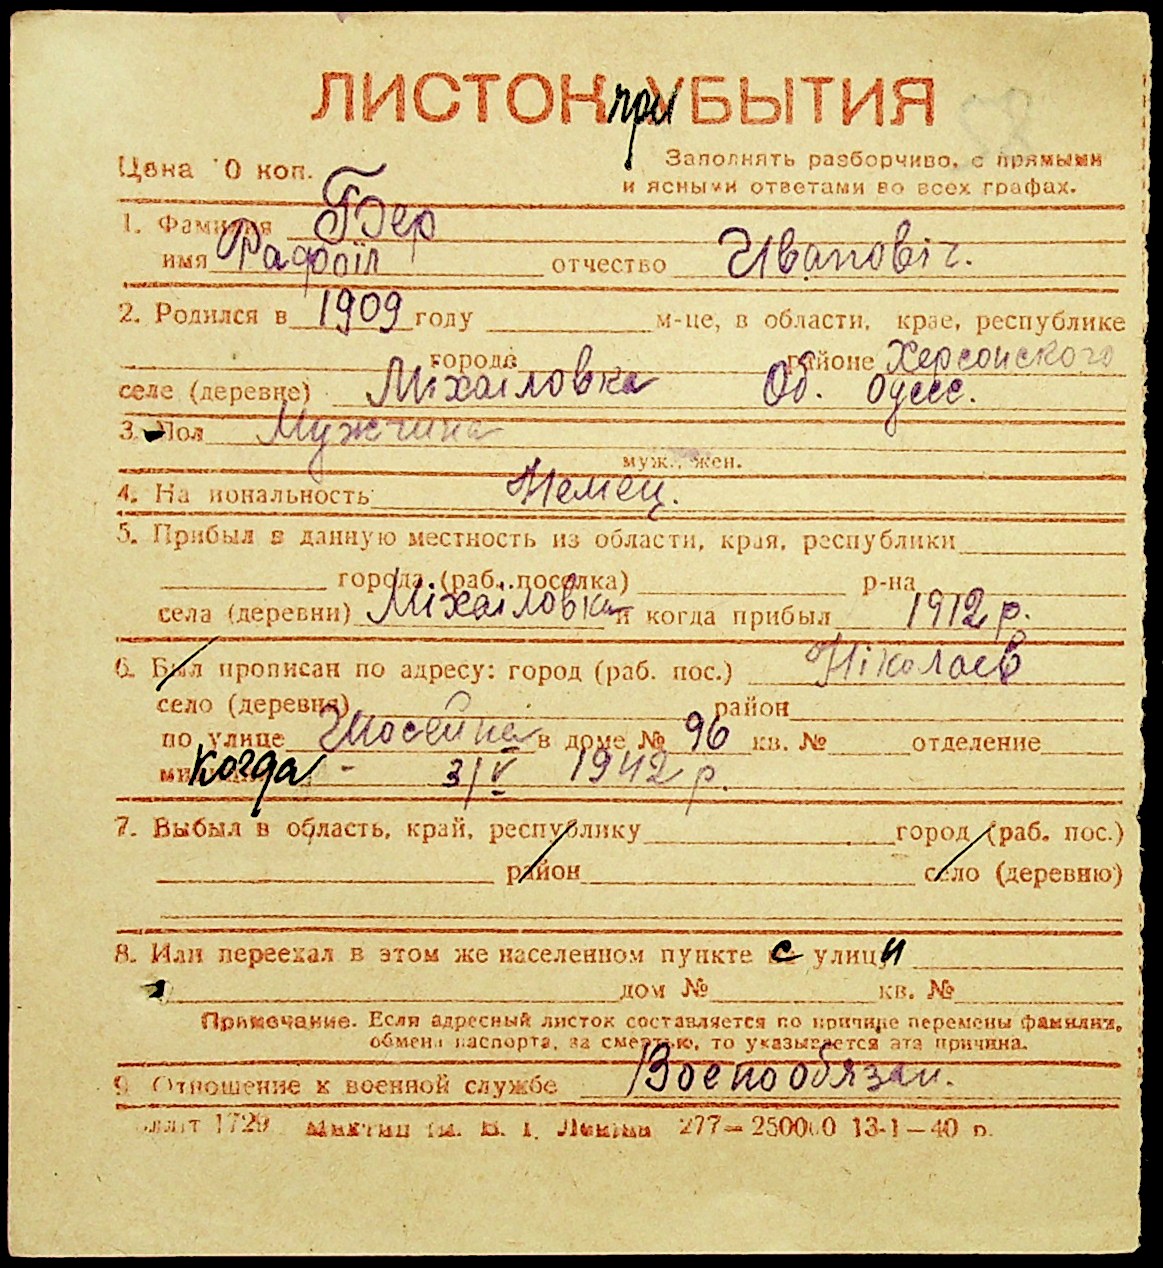 ЛИСТОК при УБЫТИЯ
58
Цена 10 коп. Заполнять разборчиво, с прямыми
и ясными ответами во всех графах.
1. Фамилия Бер
имя Рафоіл отчество Ивановіч.
2. Родился в 1909 году м-це, в области, крае, республике
города районе Херсонского
селе (деревне) Міхаіловка Об. Одесс.
3. Пол Мужчина
муж., жен.
4. Национальность Немец.
5. Прибыл в данную местность из области, края, республики
города (раб. поселка) р-на
села (деревни) Міхаіловка и когда прибыл 1912 р.
6. Был прописан по адресу: город (раб. пос.) Ніколаев
село (деревня) район
по улице в доме № 96 кв. № отделение
Когда - 3/V 1942 р.
7. Выбыл в область, край, республику город (раб. пос.)
район село (деревню)
8. Или переехал в этом же населенном пункте с улици
дом № кв. №
Примечание. Если адресный листок составляется по причине перемены фамилии,
обмена паспорта, за смертью, то указывается эта причина.
9. Отношение к военной службе Воєнообязан.
1729 им. В. І. Леніна 277—250000 13-I—40 р.